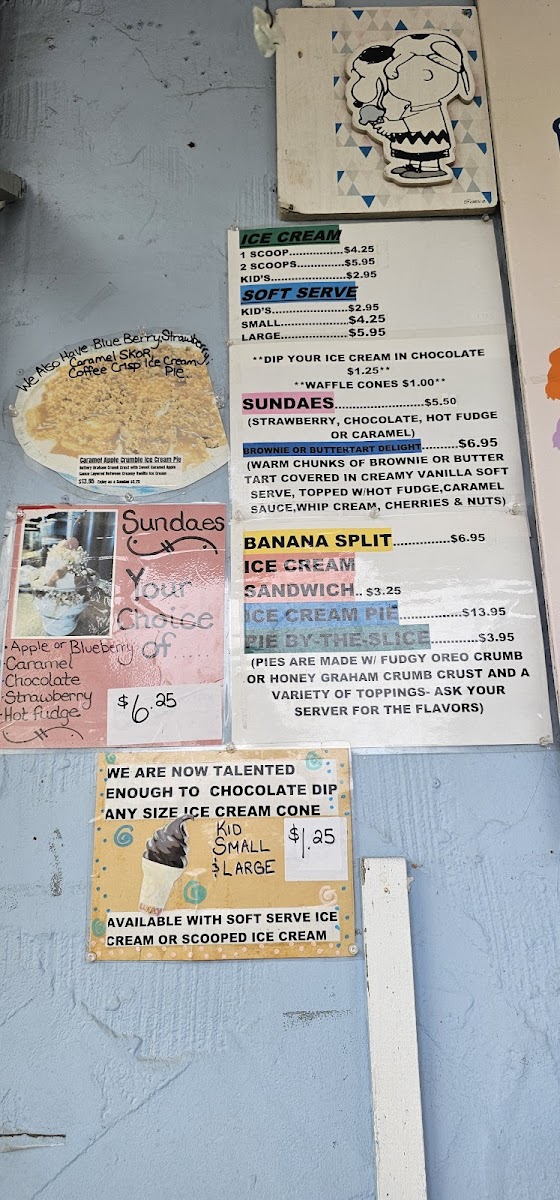 ICE CREAM
1 SCOOP...............$4.25
2 SCOOPS.............$5.95
KID'S.....................$2.95
SOFT SERVE
KID'S.....................$2.95
SMALL...................$4.25
LARGE...................$5.95
**DIP YOUR ICE CREAM IN CHOCOLATE
$1.25**
**WAFFLE CONES $1.00**
SUNDAES.....................$5.50
(STRAWBERRY, CHOCOLATE, HOT FUDGE
OR CARAMEL)
BROWNIE OR BUTTERTART DELIGHT.........$6.95
(WARM CHUNKS OF BROWNIE OR BUTTER
TART COVERED IN CREAMY VANILLA SOFT
SERVE, TOPPED W/HOT FUDGE,CARAMEL
SAUCE,WHIP CREAM, CHERRIES & NUTS)
BANANA SPLIT..............$6.95
ICE CREAM
SANDWICH.. $3.25
ICE CREAM PIE...............$13.95
PIE BY-THE-SLICE...........$3.95
(PIES ARE MADE W/ FUDGY OREO CRUMB
OR HONEY GRAHAM CRUMB CRUST AND A
VARIETY OF TOPPINGS- ASK YOUR
SERVER FOR THE FLAVORS)
We Also Have Blue Berry, Strawberry,
Caramel SKOR,
Coffee Crisp Ice Cream
Pie
Caramel Apple Crumble Ice Cream Pie
Buttery Graham Crumb Crust with Sweet Caramel Apple
Sauce Layered Between Creamy Vanilla Ice Cream
Sundaes
Your
Choice
of.....
·Apple or Blueberry
·Caramel
·Chocolate
·Strawberry
·Hot fudge
$6.25
WE ARE NOW TALENTED
ENOUGH TO CHOCOLATE DIP
ANY SIZE ICE CREAM CONE
KID
SMALL
& LARGE
$1.25
AVAILABLE WITH SOFT SERVE ICE
CREAM OR SCOOPED ICE CREAM